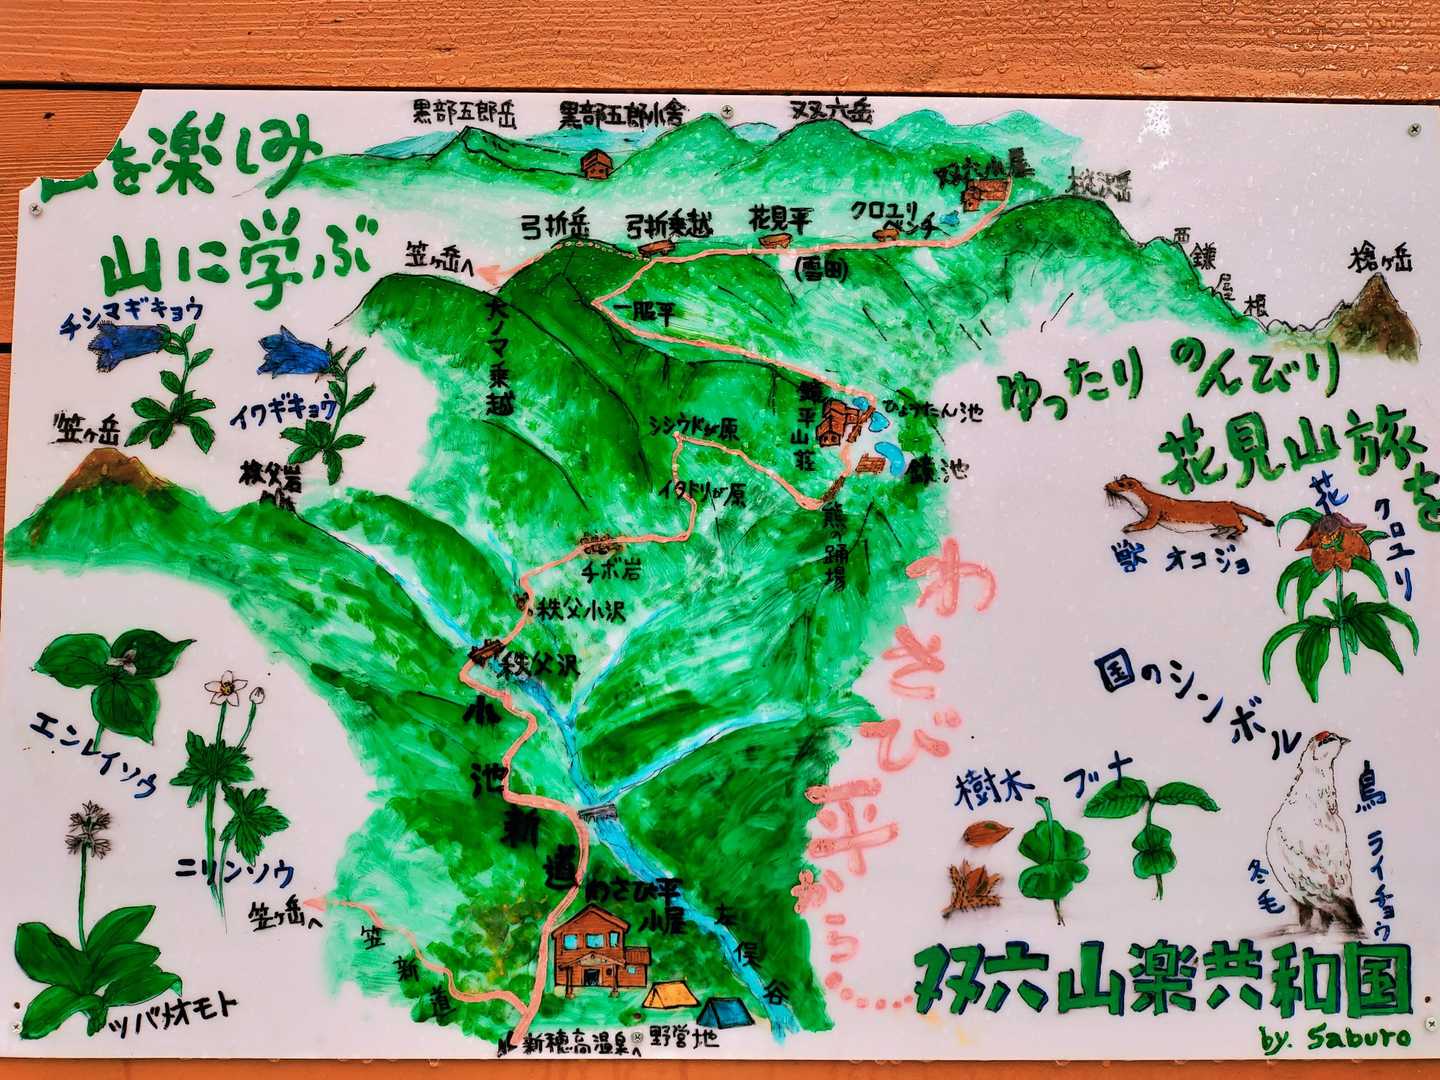 を楽しみ
山に学ぶ
黒部五郎岳
黒部五郎小舎
双六岳
双六小屋
樅沢岳
弓折岳
弓折乗越
花見平
クロユリ
ベンチ
(雪田)
笠ヶ岳へ
西
鎌
尾
根
槍ヶ岳
一服平
大ノマ乗越
チシマギキョウ
イワギキョウ
笠ヶ岳
秩父岩
シシウドが原
イタドリが原
鏡平山荘
ひょうたん池
鏡池
熊の踊場
チボ岩
秩父小沢
秩父沢
小
池
新
道
ゆったり のんびり
花見山旅を
獣 オコジョ
花 クロユリ
国のシンボル
樹木 ブナ
鳥 ライチョウ
冬毛
わさび平から…
エンレイソウ
ニリンソウ
ツバメオモト
笠ヶ岳へ
笠
新
道
わさび平
小屋
左
俣
谷
新穂高温泉へ
野営地
双六山楽共和国
by. Saburo